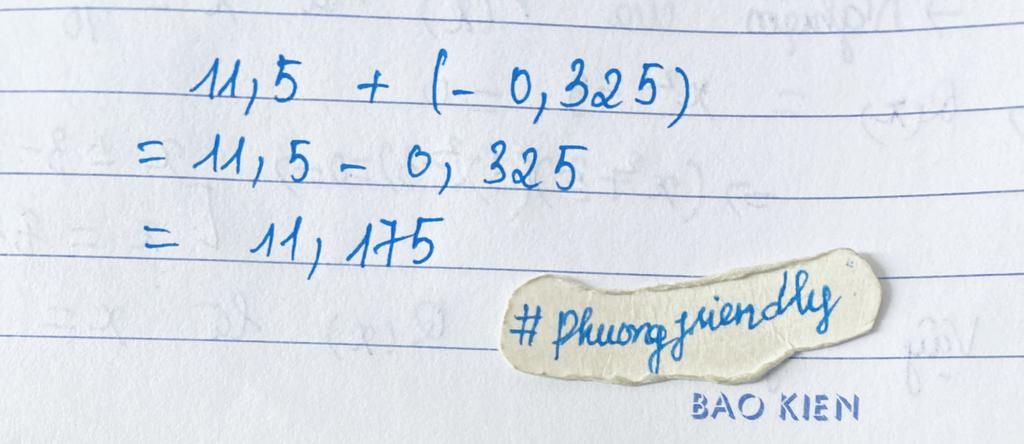 11,5 + (- 0,325)
= 11,5 - 0,325
= 11,175
#phuongfriendly
BAO KIEN